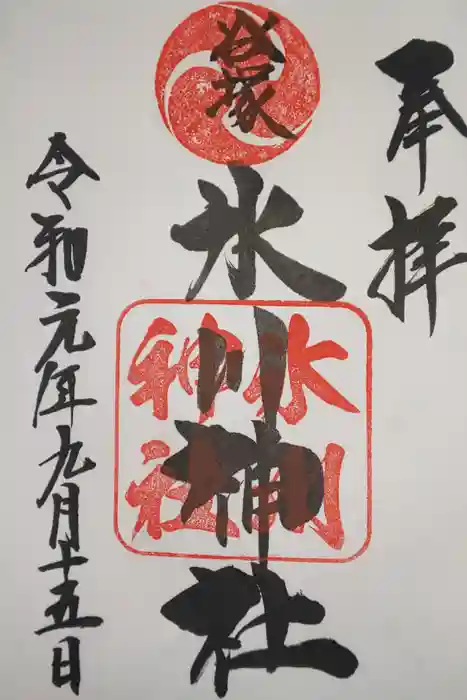 奉拝
谷塚
氷川神社
氷川
神社
令和元年九月十五日